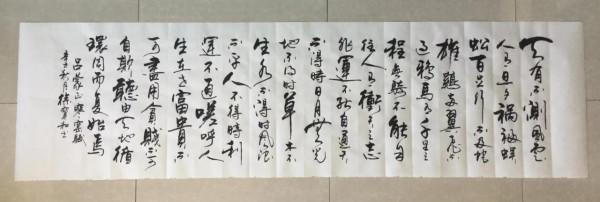 天有不測風雲
人有旦夕禍福蜈
蚣百足行不及蛇
雄鷄兩翼飛不
過鴉馬有千里之
程無騎不能自
往人有衝天之志
非運不能自通天
不得時日月無光
地不得時草木不
生水不得時風浪
不平人不得時利
運不通嗟呼人
生在世富貴不
可盡用貧賤不可
自欺聽由天地循
環周而復始焉
呂蒙正寒窯賦
辛丑秋月徐